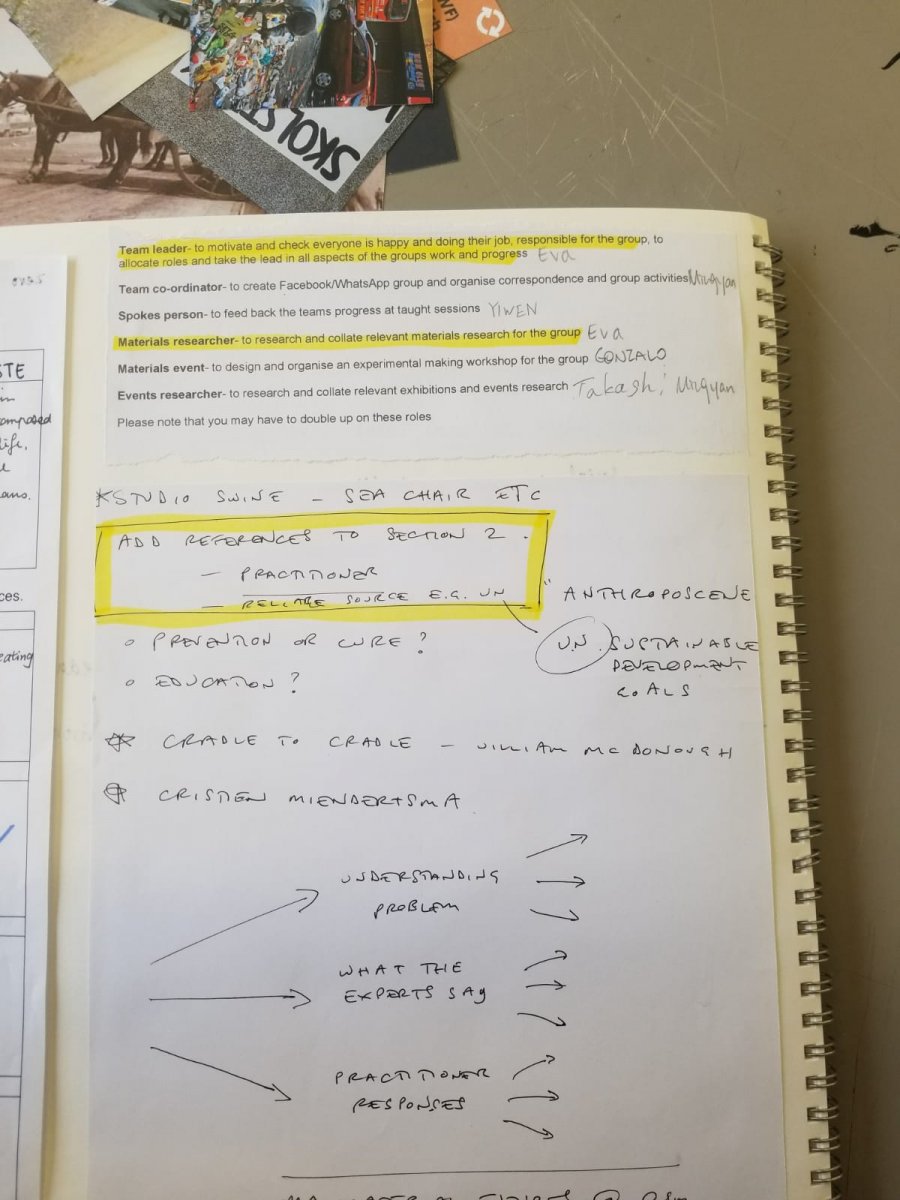 SKOL ST
Team leader- to motivate and check everyone is happy and doing their job, responsible for the group, to
allocate roles and take the lead in all aspects of the groups work and progress Eva
Team co-ordinator- to create Facebook/WhatsApp group and organise correspondence and group activities Mingyan
Spokes person- to feed back the teams progress at taught sessions YIWEN
Materials researcher- to research and collate relevant materials research for the group Eva
Materials event- to design and organise an experimental making workshop for the group GONZALO
Events researcher- to research and collate relevant exhibitions and events research Takashi, Mingyan
Please note that you may have to double up on these roles
STE
in
composed
life,
ans.
ces.
eating
STUDIO SWINE - SEA CHAIR ETC
ADD REFERENCES TO SECTION 2.
- PRACTITIONER
- RELIABLE SOURCE E.G. UN
" ANTHROPOSCENE
UN SUSTAINABLE
DEVELOPMENT
GOALS
PREVENTION OR CURE?
EDUCATION?
CRADLE TO CRADLE - WILLIAM MCDONOUGH
CRISTIEN MIENDERTSMA
UNDERSTANDING
PROBLEM
WHAT THE
EXPERTS SAY
PRACTITIONER
RESPONSES